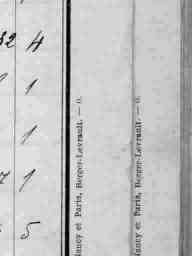 32 4
1
1
1
5
Nancy et Paris, Berger-Levrault. — 0.
Nancy et Paris, Berger-Levrault. — 0.